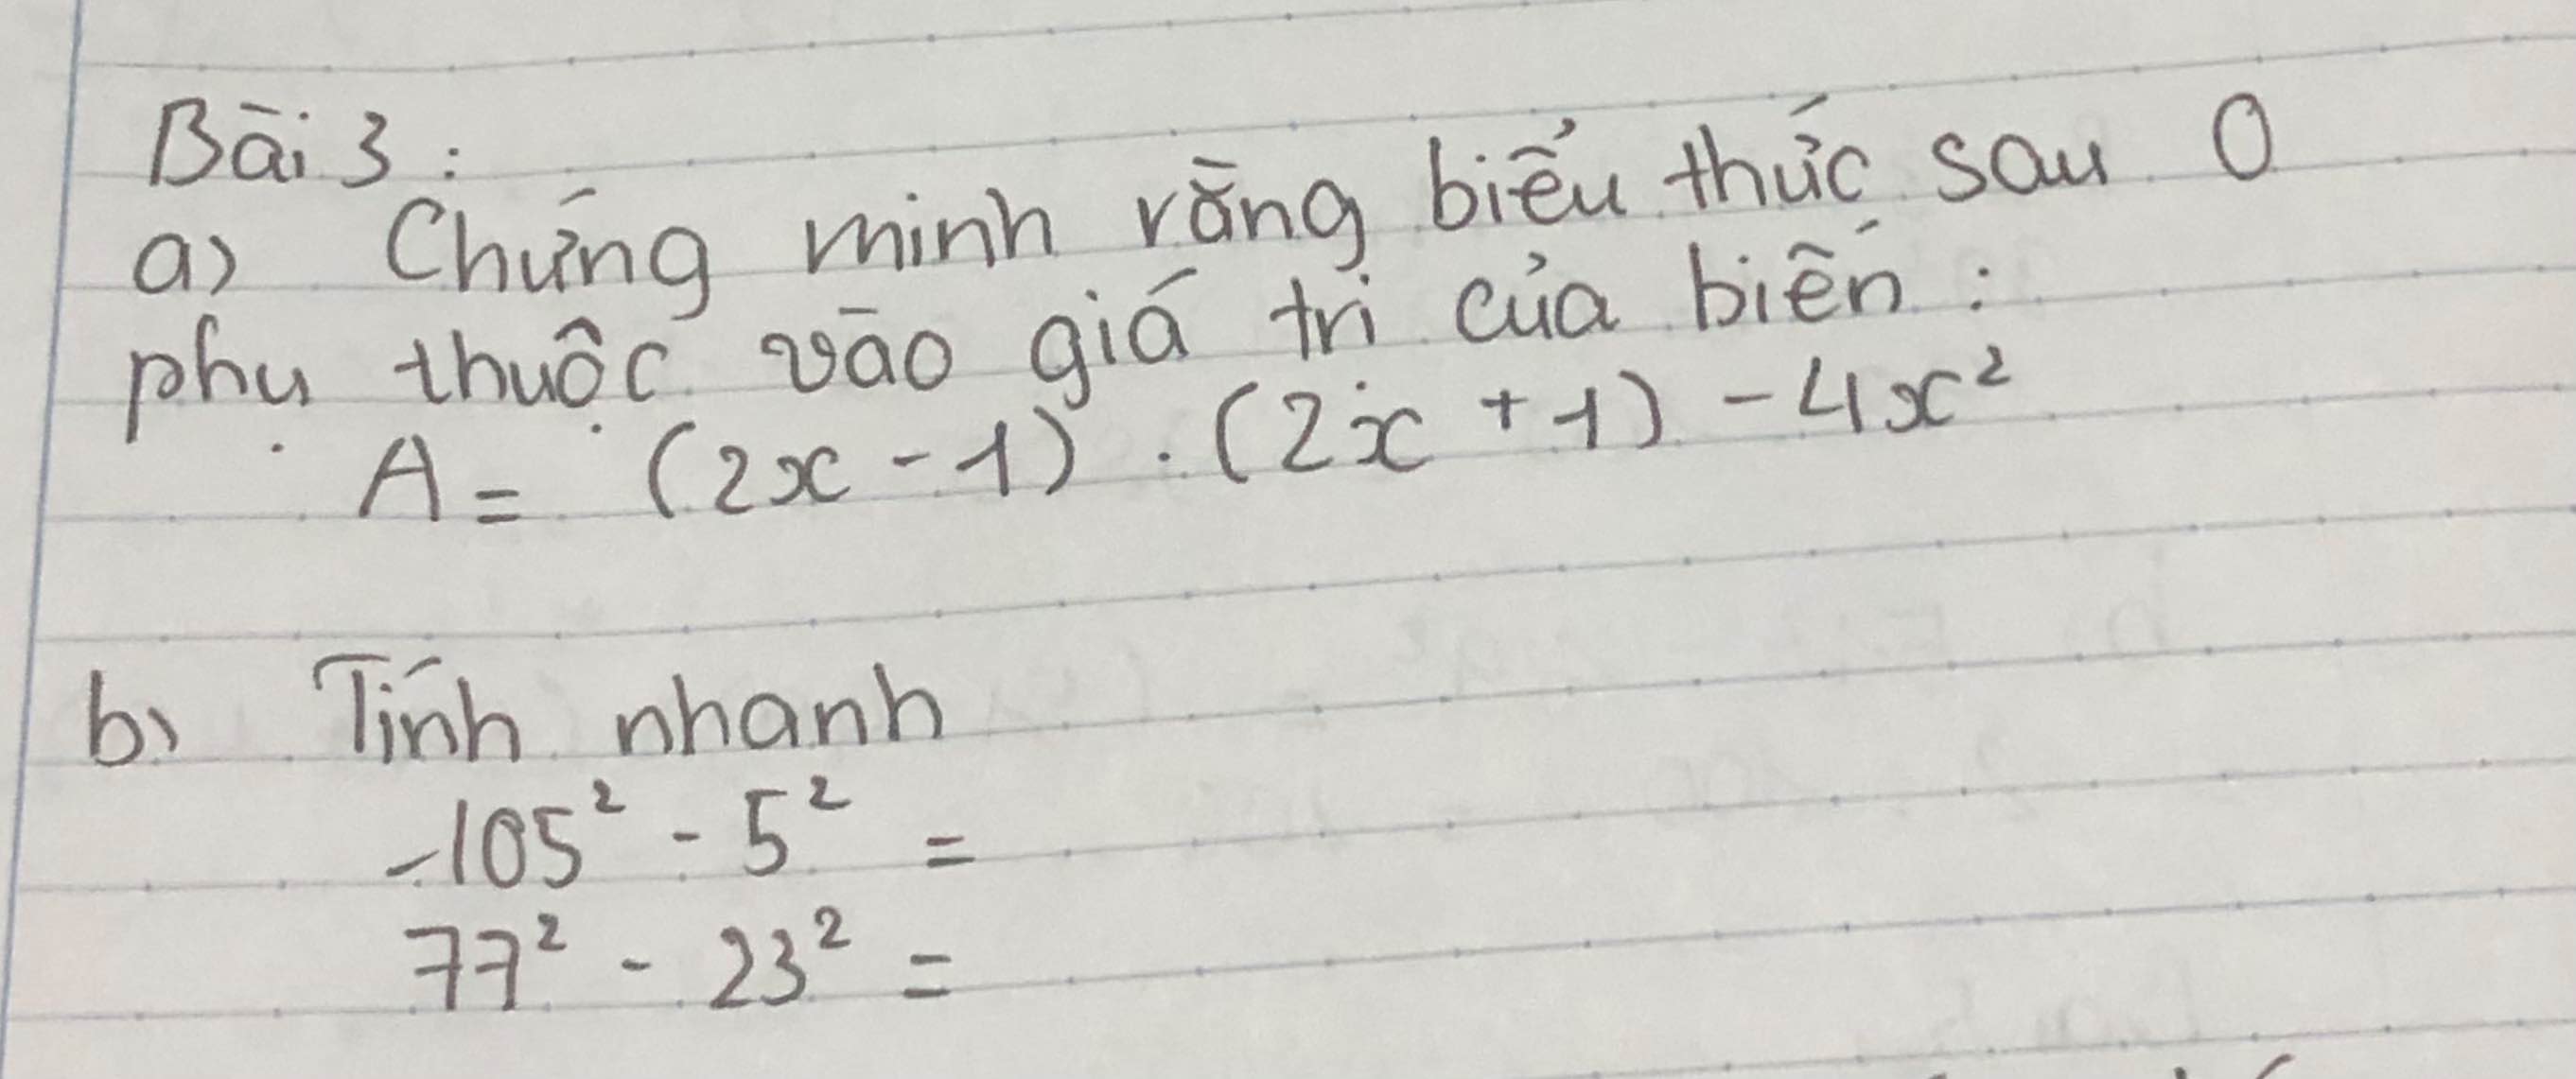 Bài 3 :
a) Chứng minh rằng biểu thức sau 0
phụ thuộc vào giá trị của biến :
A = (2x - 1) . (2x + 1) - 4x²
b) Tính nhanh
105² - 5² =
77² - 23² =